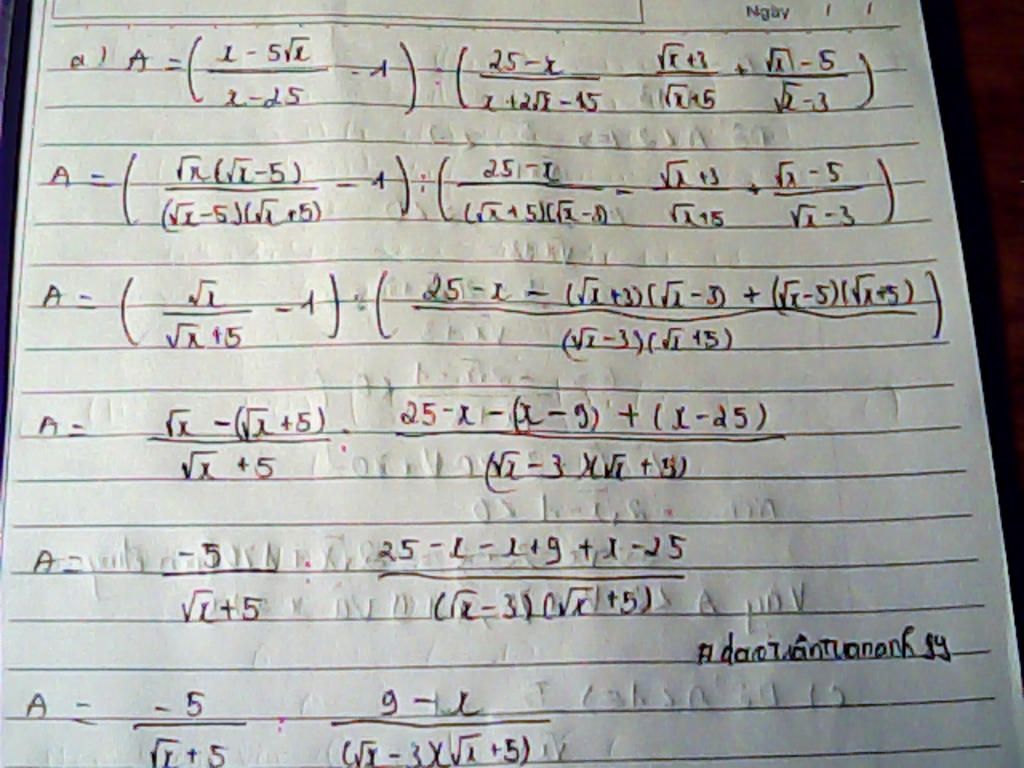 Ngày / /
a) A = ( (x - 5√x)/(x - 25) - 1 ) : ( (25 - x)/(x + 2√x - 15) (√x + 3)/(√x + 5) + (√x - 5)/(√x - 3) )
A = ( (√x(√x - 5))/((√x - 5)(√x + 5)) - 1 ) : ( (25 - x)/((√x + 5)(√x - 3)) - (√x + 3)/(√x + 5) + (√x - 5)/(√x - 3) )
A = ( √x/(√x + 5) - 1 ) : ( (25 - x - (√x + 3)(√x - 3) + (√x - 5)(√x + 5))/((√x - 3)(√x + 5)) )
A = (√x - (√x + 5))/(√x + 5) : (25 - x - (x - 9) + (x - 25))/((√x - 3)(√x + 5))
A = (-5)/(√x + 5) : (25 - x - x + 9 + x - 25)/((√x - 3)(√x + 5))
A = (-5)/(√x + 5) : (9 - x)/((√x - 3)(√x + 5))